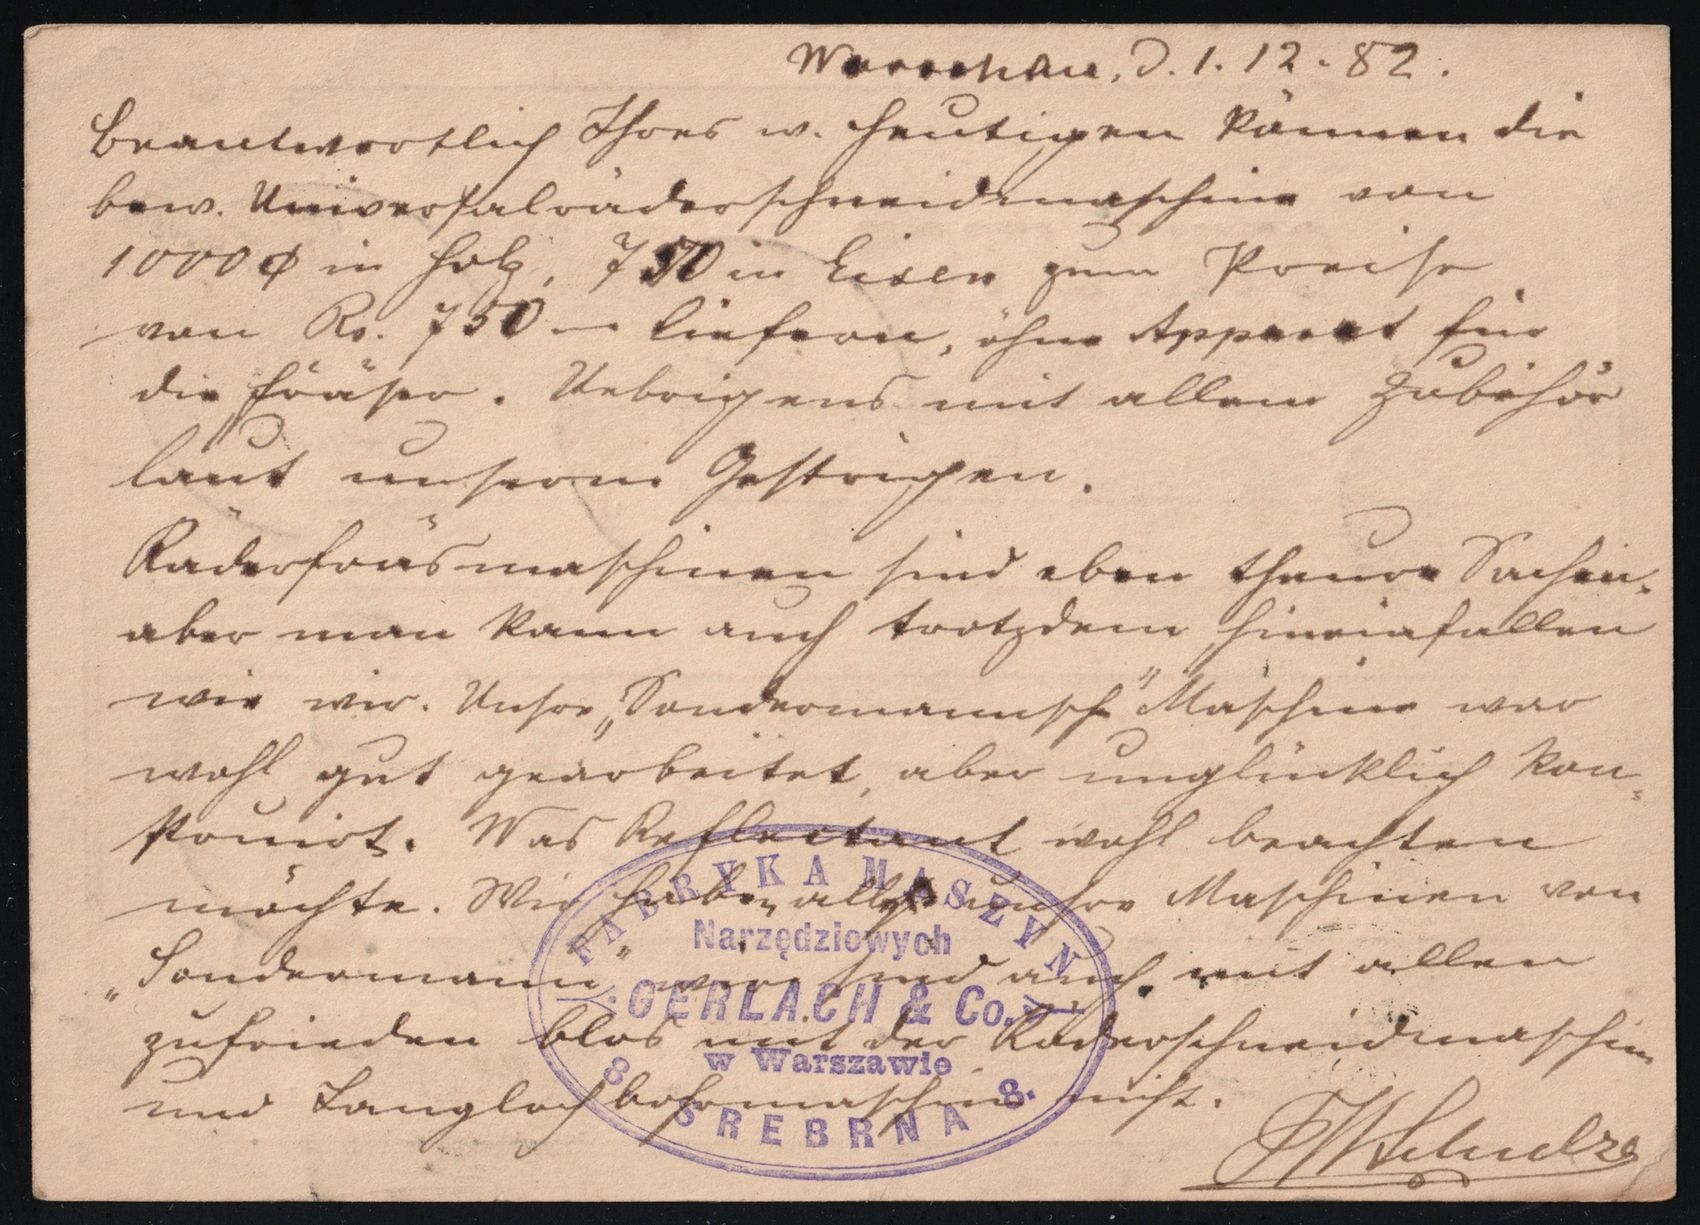 Warschau, d. 1. 12. 82.
Beantwortlich Ihres w. Heutigen können die
bew. Universalräderschneidmaschine von
1000 ⌀ in Holz, 750 in Eisen zum Preise
von Ro. 750 — liefern, ohne Apparat für
die Fräser. Uebrigens mit allem Zubehör
laut unserm Gestrigen.
Räderfräsmaschinen sind eben theure Sachen.
aber man kann auch trotzdem hineinfallen
wie wir. Unsre „Sondermannsche" Maschine war
wohl gut gearbeitet, aber unglücklich kon-
struirt. Was Reflectant wohl beachten
möchte. Wir haben alle unsre Maschinen von
„Sondermann" und auch mit allen
zufrieden blos mit der Räderschneidmaschine
und Langlochbohrmaschine nicht.
Schulze
FABRYKA MASZYN
Narzędziowych
GERLACH & Co.
w Warszawie
8 SREBRNA 8.